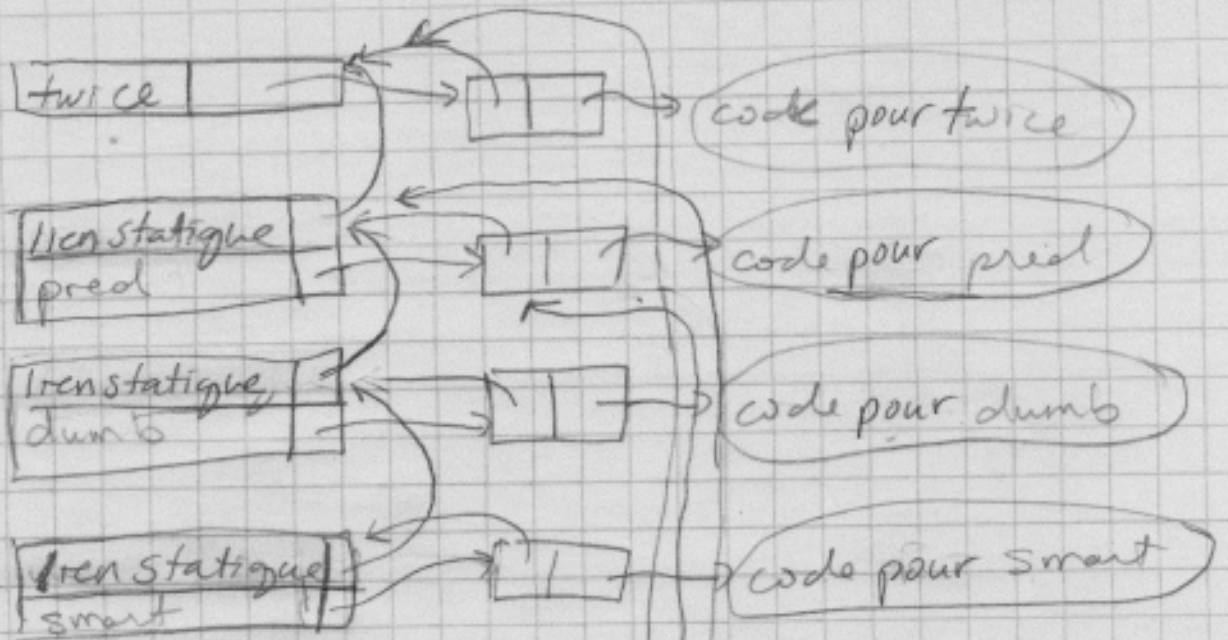 twice
code pour twice
lien statique
pred
code pour pred
lien statique
dumb
code pour dumb
lien statique
smart
code pour smart